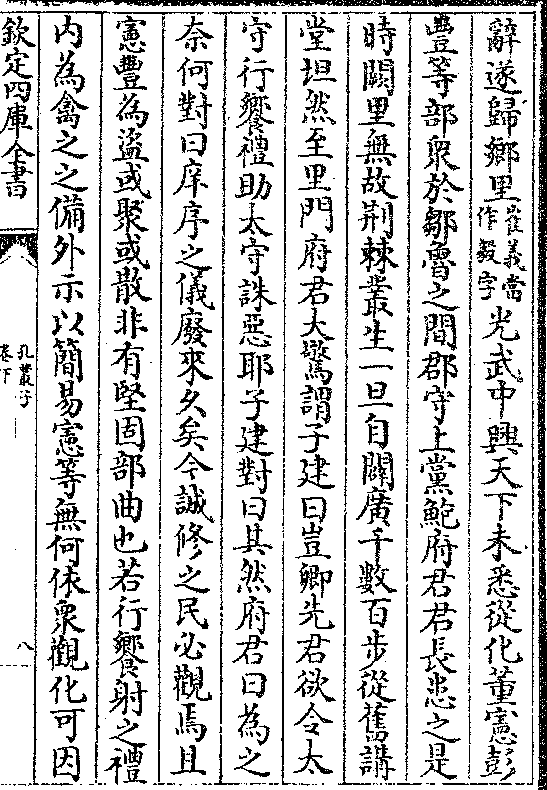 辭遂歸鄉里崔義當作毅字光武中興天下未悉從化董憲彭
豐等部衆於鄒魯之間郡守上黨鮑府君君長患之是
時闕里無故荆棘叢生一旦自闢廣千數百步從舊講
堂坦然至里門府君大驚謂子建曰豈卿先君欲令太
守行饗禮助太守誅惡耶子建對曰其然府君曰為之
奈何對曰庠序之儀廢來久矣今誠修之民必觀焉且
憲豐為盜或聚或散非有堅固部曲也若行饗射之禮
内為禽之之備外示以簡易憲等無何依衆觀化可因
欽定四庫全書
孔叢子
卷下
八